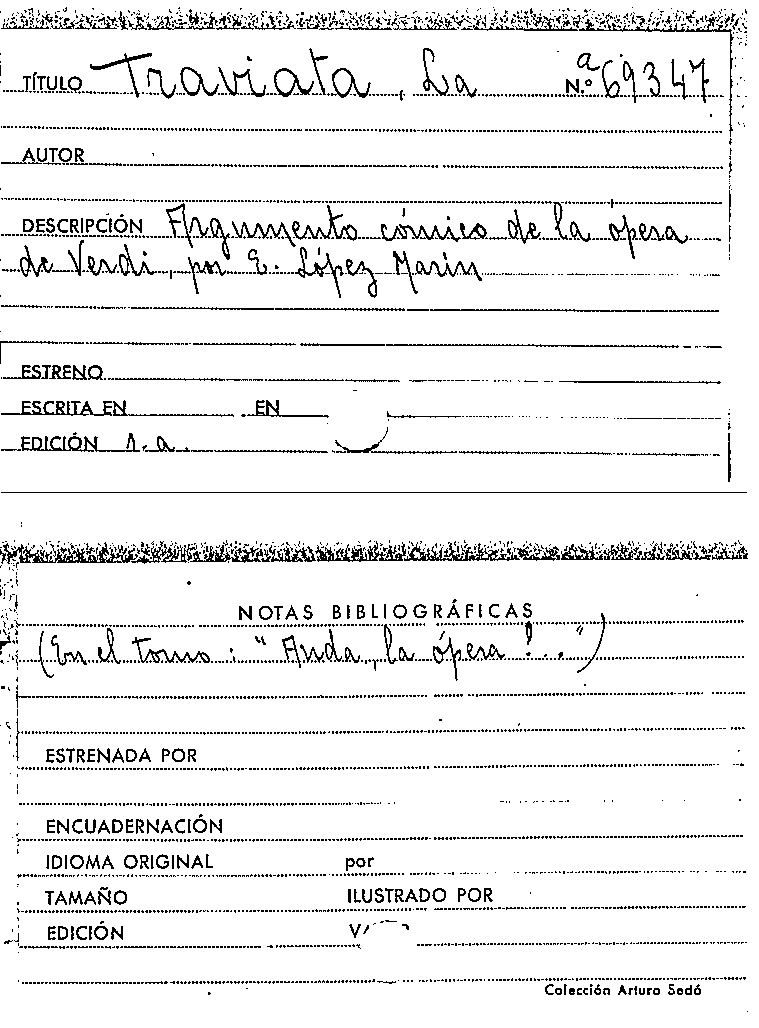 TÍTULO Traviata, La N.º a 69347
AUTOR
DESCRIPCIÓN Argumento cómico de la ópera
de Verdi, por E. López Marín
ESTRENO
ESCRITA EN EN
EDICIÓN s.a.
NOTAS BIBLIOGRÁFICAS
(En el tomo: "Anda, la ópera!..")
ESTRENADA POR
ENCUADERNACIÓN
IDIOMA ORIGINAL por
TAMAÑO ILUSTRADO POR
EDICIÓN
Colección Arturo Sedó